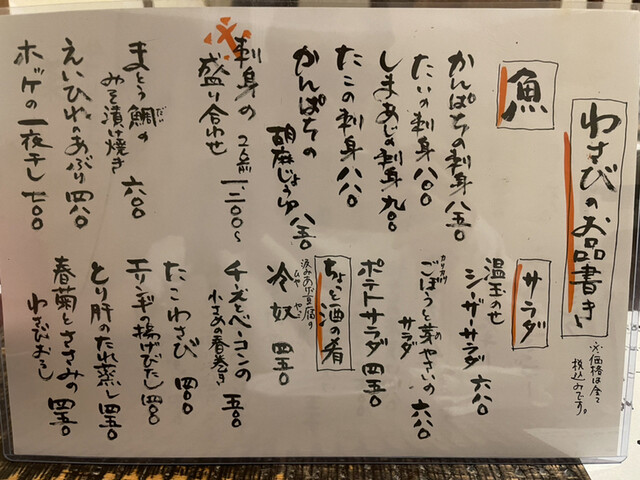 わさびのお品書き
※価格は全て
税込みです。
魚
かんぱちの刺身 八五〇
たいの刺身 八〇〇
しまあじの刺身 九〇〇
たこの刺身 八八〇
かんぱちの
胡麻じょうゆ 八五〇
刺身の
盛り合わせ
2人前 一、二〇〇〜
まとう鯛の
だい
みそ漬け焼き 六〇〇
えいひれのあぶり 四八〇
ホッケの一夜干し 七〇〇
サラダ
温玉のせ
シーザーサラダ 六八〇
カリカリ
ごぼうと芽やさいの
サラダ 六八〇
ポテトサラダ 四五〇
ちょっと酒の肴
汲みあげ豆腐の
冷奴 四五〇
ひややっこ
チーズとベーコンの
小さめ春巻き 五〇〇
たこわさび 四〇〇
エリンギの揚げびたし 四〇〇
とり肝のたれ蒸し 四五〇
春菊とささみの
わさびおろし 四五〇